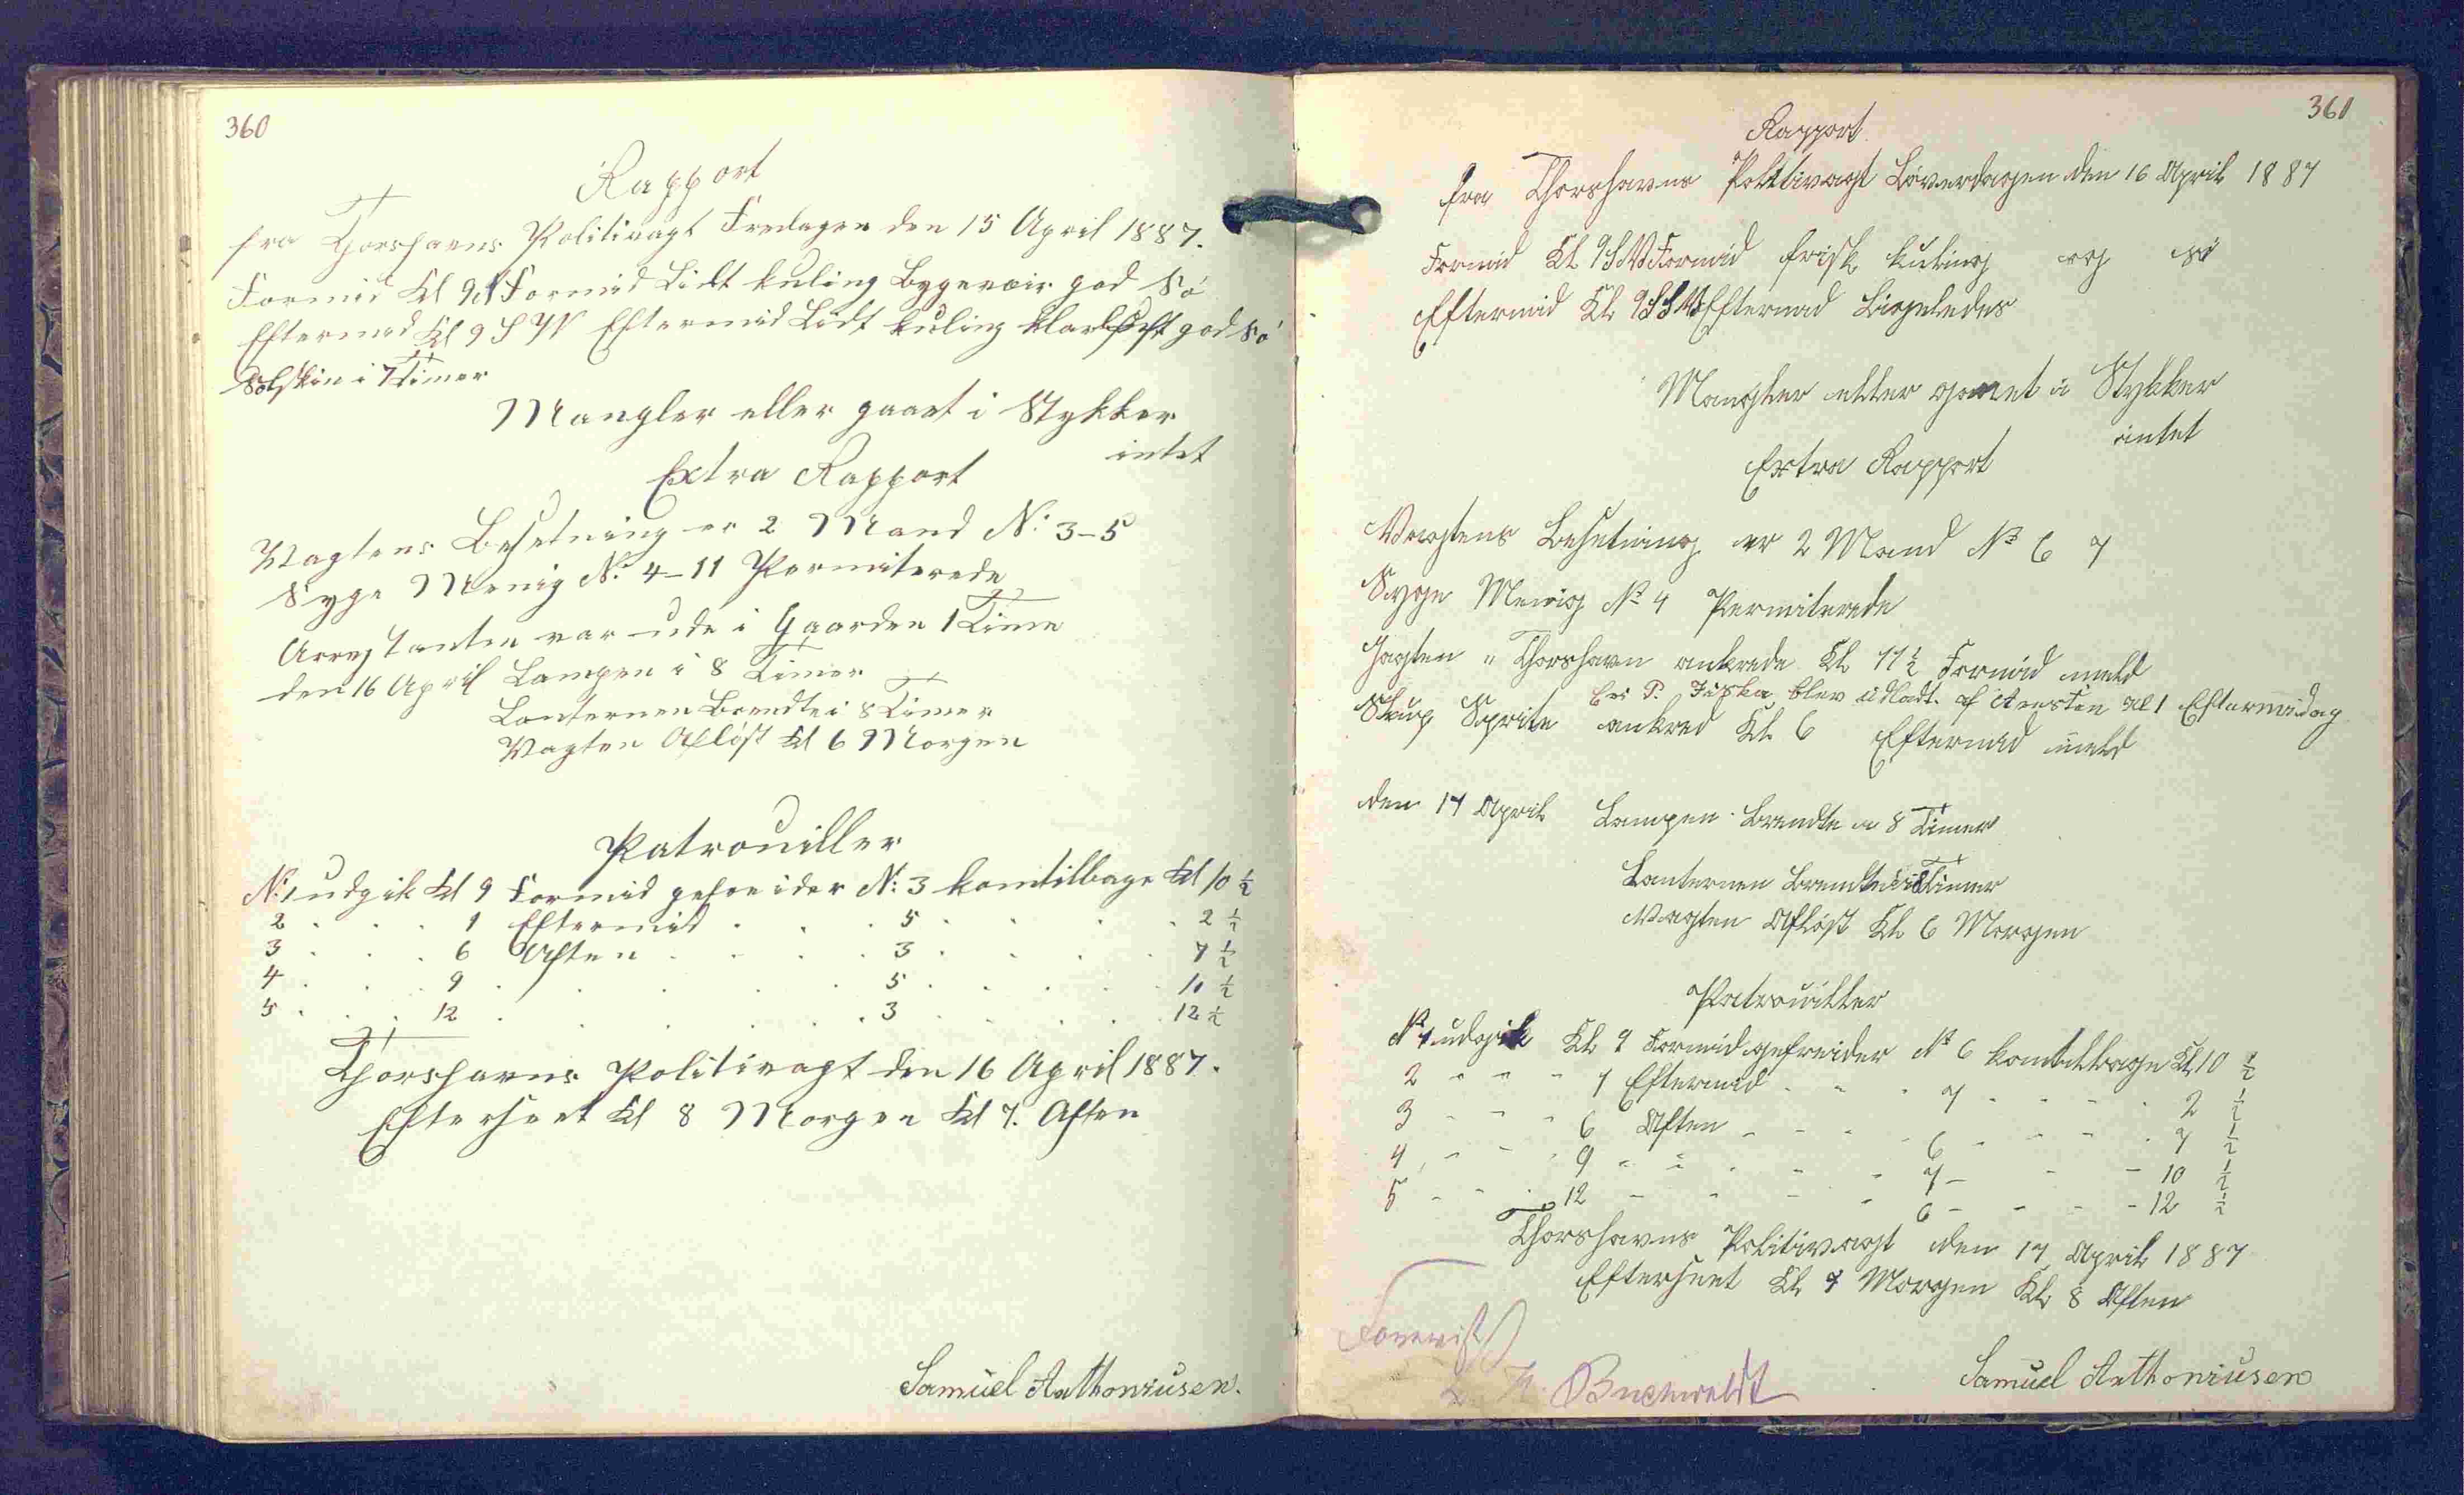 360
Rapport
fra Thorshavns Politivagt Fredagen den 15 April 1887.
Formid Kl 9 N Formid Lidt kuling Bygevair god Sö
Eftermid Kl 9 S W Eftermid Lidt kuling klarluft god Sö
Solskin i 7 Timer
Mangler eller gaaet i Stykker
intet
Extra Rapport
Vagtens Besetning er 2 Mand N: 3-5
Syge Menig N: 4-11 Permiterede
Arrestanten var ude i Gaarden 1 Time
den 16 April Lampen i 8 Timer
Lanternen Brendte i 8 Timer
Vagten Aflöst Kl 6 Morgen
Patrouiller
N: 1 udgik Kl 9 Formid gefreider N: 3 kom tilbage Kl 10 ½
2 . . . 1 Eftermid . . . 5 . . . . 2 ½
3 . . . 6 Aften . . . . 3 . . . . 7 ½
4 . . . 9 . . . . . 5 . . . . 10 ½
5 . . . 12 . . . . . 3 . . . . 12 ½
Thorshavns Politivagt den 16 April 1887.
Efterseet Kl 8 Morgen Kl 7. Aften
Samuel Anthoniusen.
361
Rapport
fra Thorshavns Politivagt Löverdagen den 16 April 1887
Formid Kl 9 S W Formid frisk kuling og sö
Eftermid Kl 9 S S W Eftermid Ligeledes
Mangler eller gaaet i Stykker
intet
Extra Rapport
Vagtens Besetning er 2 Mand No 6 7
Syge Menig No 4 Permiterede
Jagten " Thorshavn ankrede Kl 11½ Formid meld
P. Juska blev udladt af Aresten Kl 1 Eftermidag
Slup Sprite ankred Kl 6 Eftermid meld
den 17 April Lampen Brendte i 8 Timer
Lanternen Brendte i 8 Timer
Vagten Aflöst Kl 6 Morgen
Patrouiller
No 1 udgik Kl 9 Formid gefreider No 6 kom tilbage Kl 10 ½
2 " " " 1 Eftermid - - - 7 - - - - 2 ½
3 - - - 6 Aften - - - - 6 - - - - 7 ½
4 - - - 9 - - - - - 7 - - - 10 ½
5 - - - 12 - - - - 6 - - - - 12 ½
Thorshavns Politivagt den 17 April 1887
Efterseet Kl 7 Morgen Kl 8 Aften
Forevist
Buchwaldt
Samuel Anthoniusen